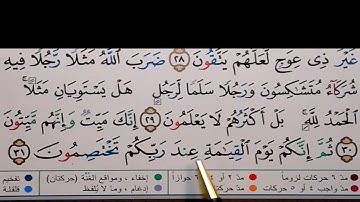 غَيْرَ ذِى عِوَجٍ لَّعَلَّهُمْ يَتَّقُونَ ٢٨ ضَرَبَ ٱللَّهُ مَثَلًا رَّجُلًا فِيهِ
شُرَكَآءُ مُتَشَٰكِسُونَ وَرَجُلًا سَلَمًا لِّرَجُلٍ هَلْ يَسْتَوِيَانِ مَثَلًا ۚ
ٱلْحَمْدُ لِلَّهِ ۚ بَلْ أَكْثَرُهُمْ لَا يَعْلَمُونَ ٢٩ إِنَّكَ مَيِّتٌ وَإِنَّهُم مَّيِّتُونَ
٣٠ ثُمَّ إِنَّكُمْ يَوْمَ ٱلْقِيَٰمَةِ عِندَ رَبِّكُمْ تَخْتَصِمُونَ ٣١
مدّ ٦ حركات لزوماً مدّ ٢ أو ٤ أو ٦ جوازاً إخفاء ، ومواقع الغُنَّة (حركتان) تفخيم
مدّ واجب ٤ أو ٥ حركات مدّ حركتان إدغام ، وما لا يُلفَظ قلقلة